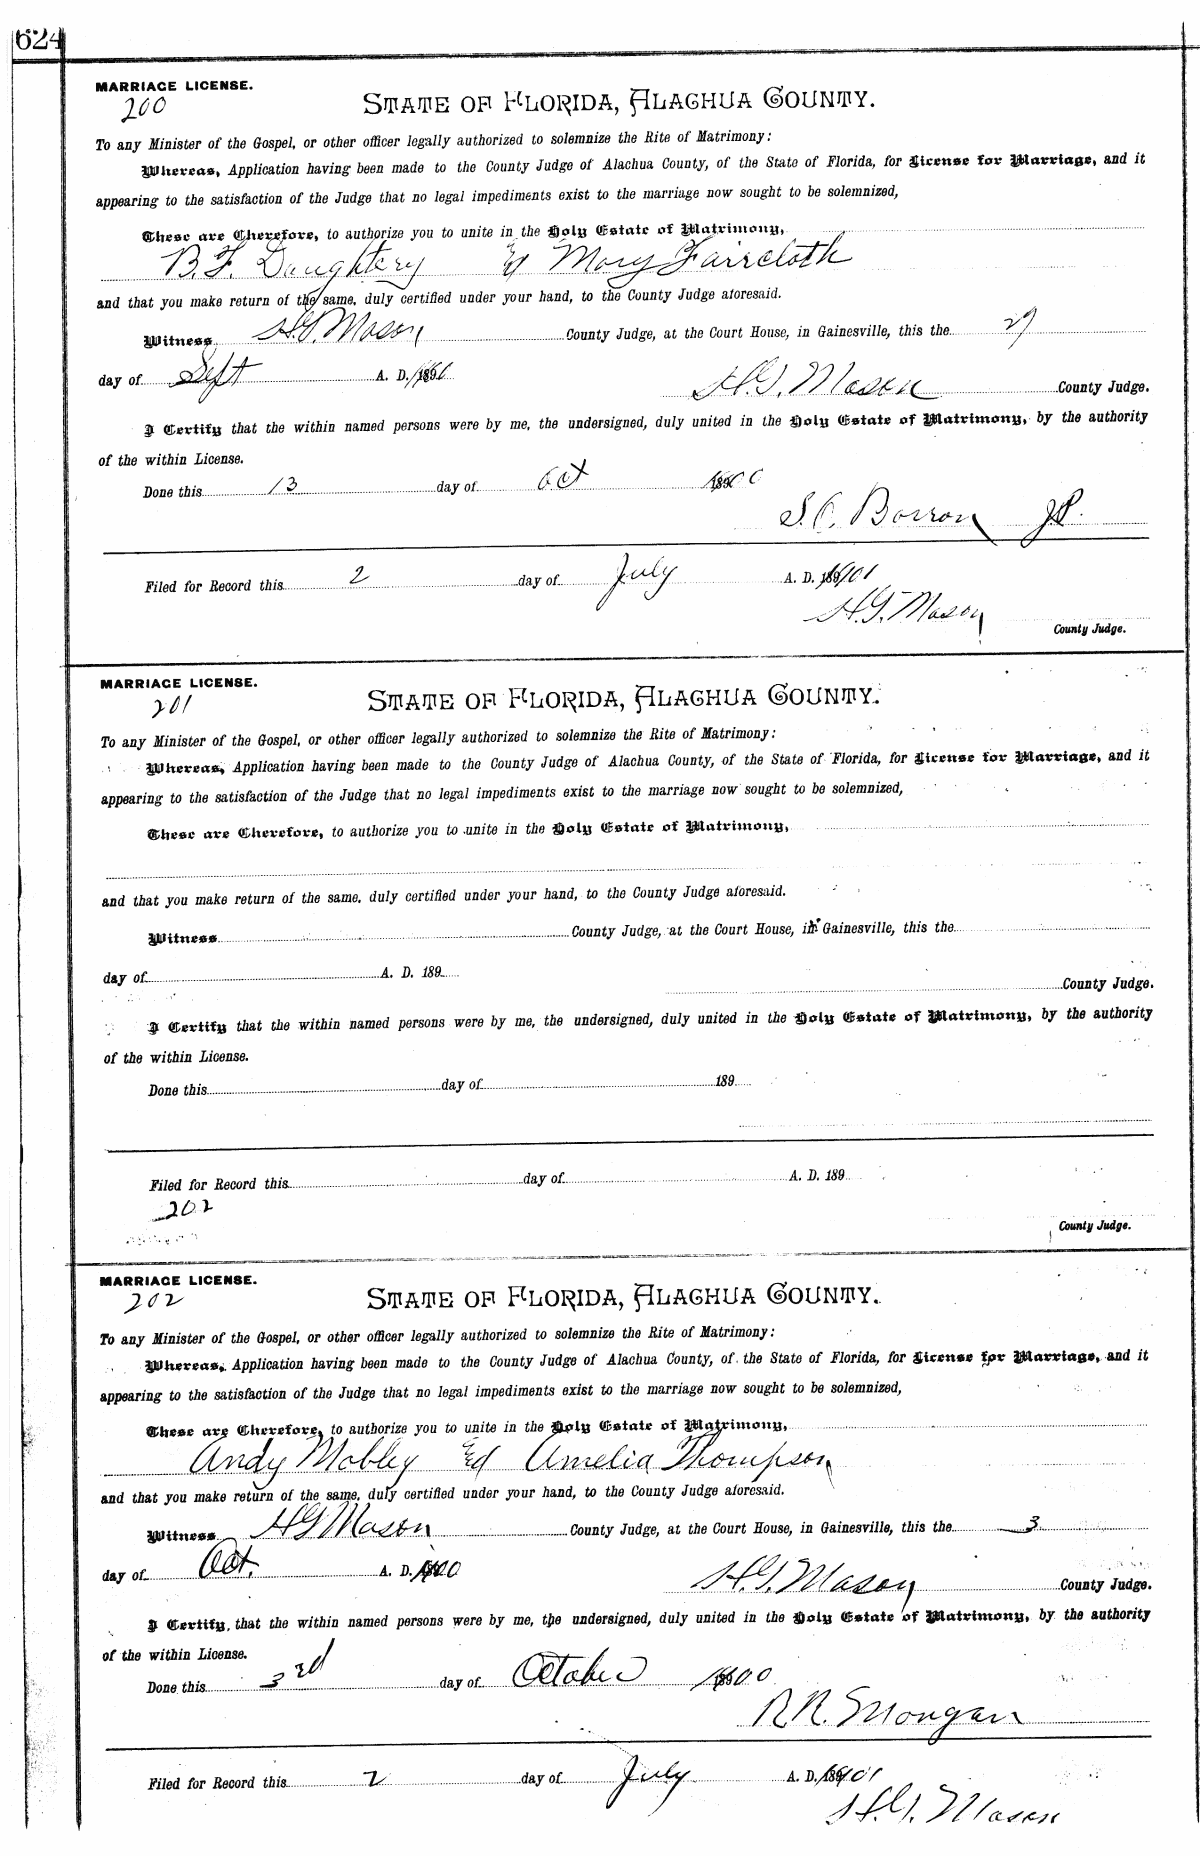 624
MARRIAGE LICENSE.
200
STATE OF FLORIDA, ALACHUA COUNTY.
To any Minister of the Gospel, or other officer legally authorized to solemnize the Rite of Matrimony:
Whereas, Application having been made to the County Judge of Alachua County, of the State of Florida, for License for Marriage, and it
appearing to the satisfaction of the Judge that no legal impediments exist to the marriage now sought to be solemnized,
These are Therefore, to authorize you to unite in the Holy Estate of Matrimony,
B. F. Daughtery & Mary Faircloth
and that you make return of the same, duly certified under your hand, to the County Judge aforesaid.
Witness H.G. Mason County Judge, at the Court House, in Gainesville, this the 29
day of Sept A. D. 1900
H.G. Mason County Judge.
I Certify that the within named persons were by me, the undersigned, duly united in the Holy Estate of Matrimony, by the authority
of the within License.
Done this 13 day of Oct 1900
S.C. Barron J.P.
Filed for Record this 2 day of July A. D. 1901
H.G. Mason
County Judge.
MARRIAGE LICENSE.
201
STATE OF FLORIDA, ALACHUA COUNTY.
To any Minister of the Gospel, or other officer legally authorized to solemnize the Rite of Matrimony:
Whereas, Application having been made to the County Judge of Alachua County, of the State of Florida, for License for Marriage, and it
appearing to the satisfaction of the Judge that no legal impediments exist to the marriage now sought to be solemnized,
These are Therefore, to authorize you to unite in the Holy Estate of Matrimony,
and that you make return of the same, duly certified under your hand, to the County Judge aforesaid.
Witness County Judge, at the Court House, in Gainesville, this the
day of A. D. 189
County Judge.
I Certify that the within named persons were by me, the undersigned, duly united in the Holy Estate of Matrimony, by the authority
of the within License.
Done this day of 189
Filed for Record this day of A. D. 189
202
County Judge.
MARRIAGE LICENSE.
202
STATE OF FLORIDA, ALACHUA COUNTY.
To any Minister of the Gospel, or other officer legally authorized to solemnize the Rite of Matrimony:
Whereas, Application having been made to the County Judge of Alachua County, of the State of Florida, for License for Marriage, and it
appearing to the satisfaction of the Judge that no legal impediments exist to the marriage now sought to be solemnized,
These are Therefore, to authorize you to unite in the Holy Estate of Matrimony,
Andy Mobley & Amelia Thompson
and that you make return of the same, duly certified under your hand, to the County Judge aforesaid.
Witness H G Mason County Judge, at the Court House, in Gainesville, this the 3
day of Oct. A. D. 1900
H.G. Mason County Judge.
I Certify, that the within named persons were by me, the undersigned, duly united in the Holy Estate of Matrimony, by the authority
of the within License.
Done this 3rd day of October 1900
R.R. Mongan
Filed for Record this 2 day of July A. D. 1901
H.G. Mason